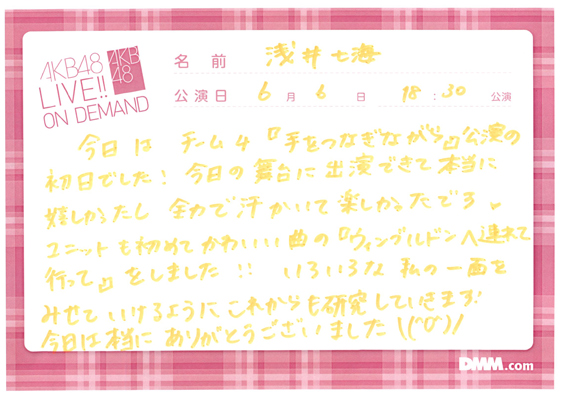 AKB48
LIVE!!
ON DEMAND
AKB
48
名 前 浅井七海
公演日 6 月 6 日 18:30 公演
今日は チーム4『手をつなぎながら』公演の
初日でした! 今日の舞台に出演できて本当に
嬉しかったし 全力で汗かいて楽しかったです。
ユニットも初めてかわいい曲の『ウィンブルドンへ連れて
行って』をしました!! いろいろな私の一面を
みせていけるようにこれからも研究していきます!
今日は本当にありがとうございました\(^o^)/
DMM.com